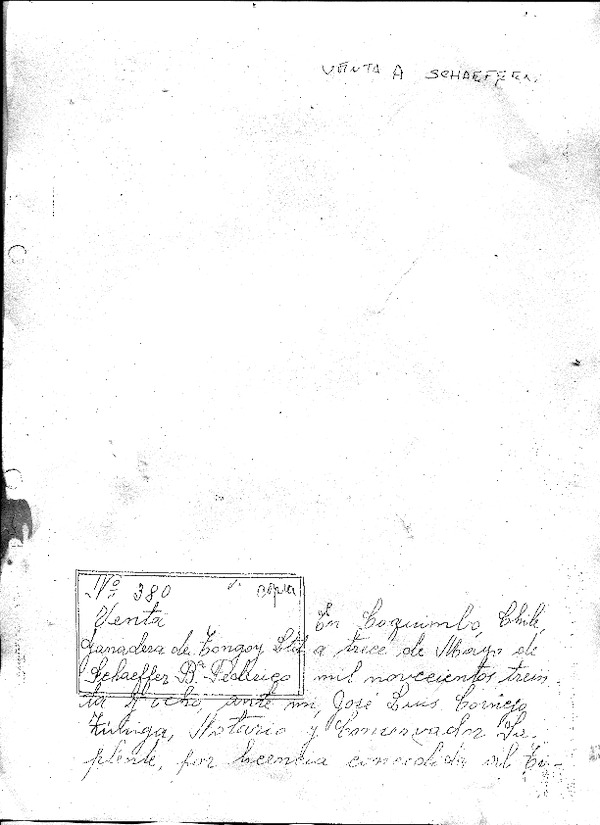 VENTA A SCHAEFFER.
Nº 380 copia
Venta
Ganadera de Tongoy Ltd
Schaeffer Bª Federico
En Coquimbo, Chile
a trece de Mayo de
mil novecientos trein
ta y ocho, ante mí, José Luis Cornejo
Zúñiga, Notario y Conservador Su
plente, por licencia concedida al Ti-